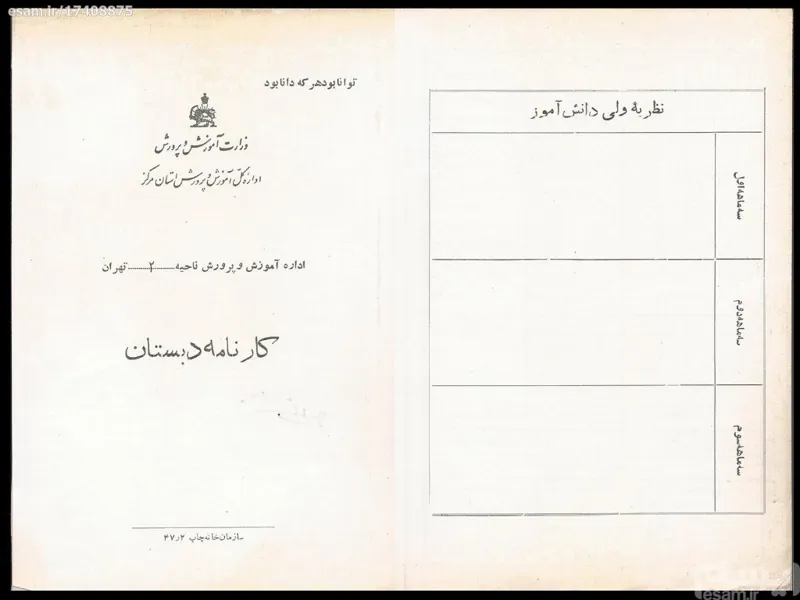 esam.ir/17408875
توانا بود هر که دانا بود
وزارت آموزش و پرورش
اداره کل آموزش و پرورش استان مرکز
اداره آموزش و پرورش ناحیه ......۲...... تهران
کارنامه دبستان
سازمان خانه چاپ ۴۷٫۲
نظریه ولی دانش آموز
سه ماهه اول
سه ماهه دوم
سه ماهه سوم
esam.ir